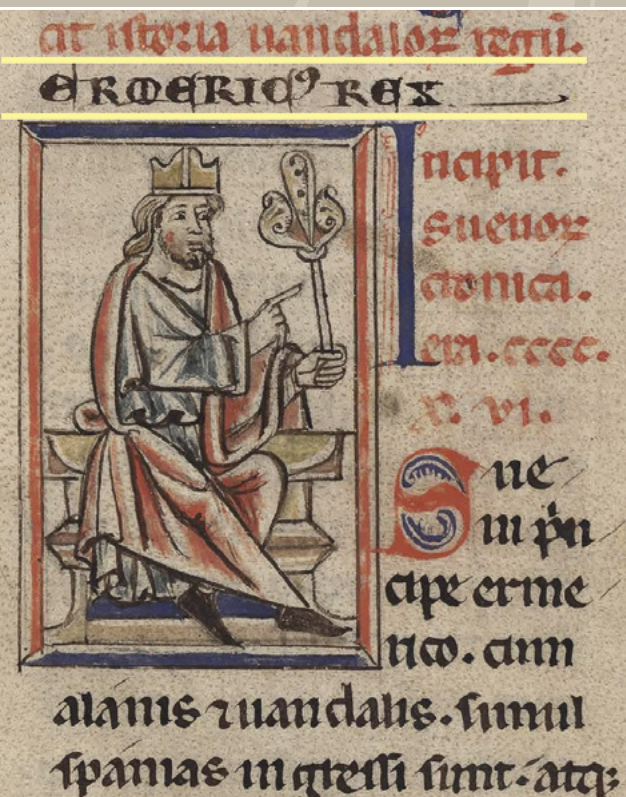 cit istoria uandaloꝝ regũ.
ERMERICꝰ REX
Incipit.
sueuoꝝ
cronica.
era. cccc.
X. vi.
Sue
ui pͥn
cipe erme
rico. cum
alanis ⁊ uandalis. simul
spanias ingressi sunt. atqꝫ